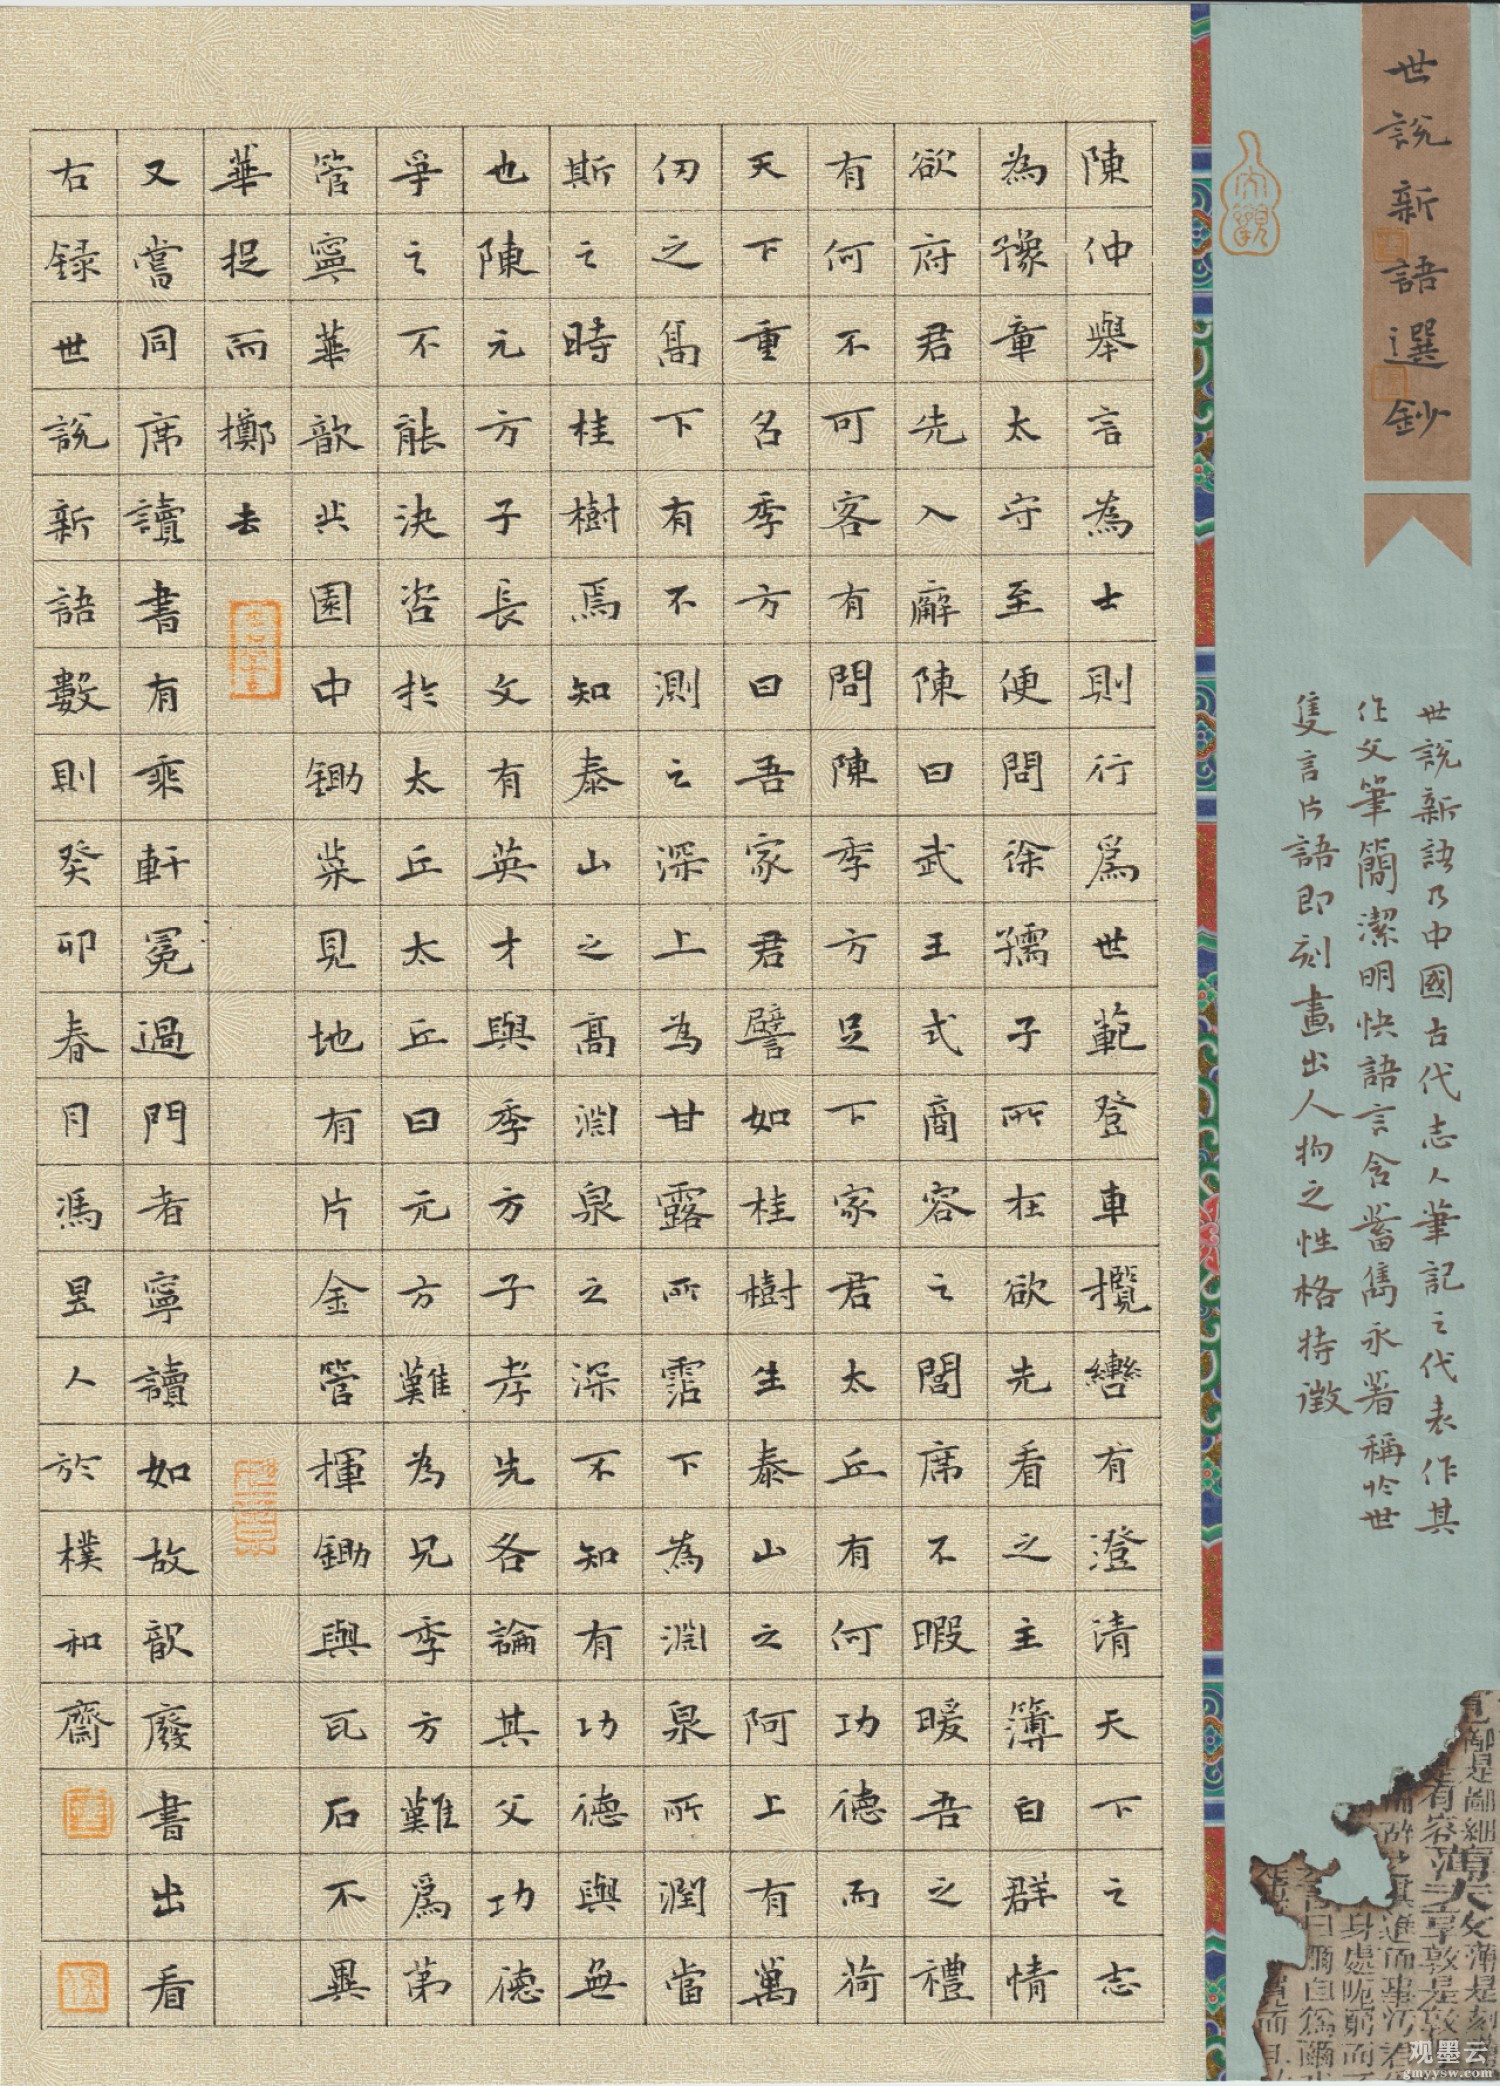 世說新語選鈔
世説新語乃中國古代志人筆記之代表作其
作文筆簡潔明快語言含蓄雋永著稱於世
隻言片語即刻畫出人物之性格特徵
陳仲舉言為士則行爲世範登車攬轡有澄清天下之志
為豫章太守至便問徐孺子所在欲先看之主簿白群情
欲府君先入廨陳曰武王式商容之閭席不暇暖吾之禮
有何不可客有問陳季方足下家君太丘有何功德而荷
天下重名季方曰吾家君譬如桂樹生泰山之阿上有萬
仞之高下有不測之深上為甘露所霑下為淵泉所潤當
斯之時桂樹焉知泰山之高淵泉之深不知有功德與無
也陳元方子長文有英才與季方子孝先各論其父功德
爭之不能決咨於太丘太丘曰元方難為兄季方難爲第
管寧華歆共園中鋤菜見地有片金管揮鋤與瓦石不異
華捉而擲去
又嘗同席讀書有乘軒冕過門者寧讀如故歆廢書出看
右録世說新語數則癸卯春月馮昱人於樸和齋
观墨云
gmyysw.com